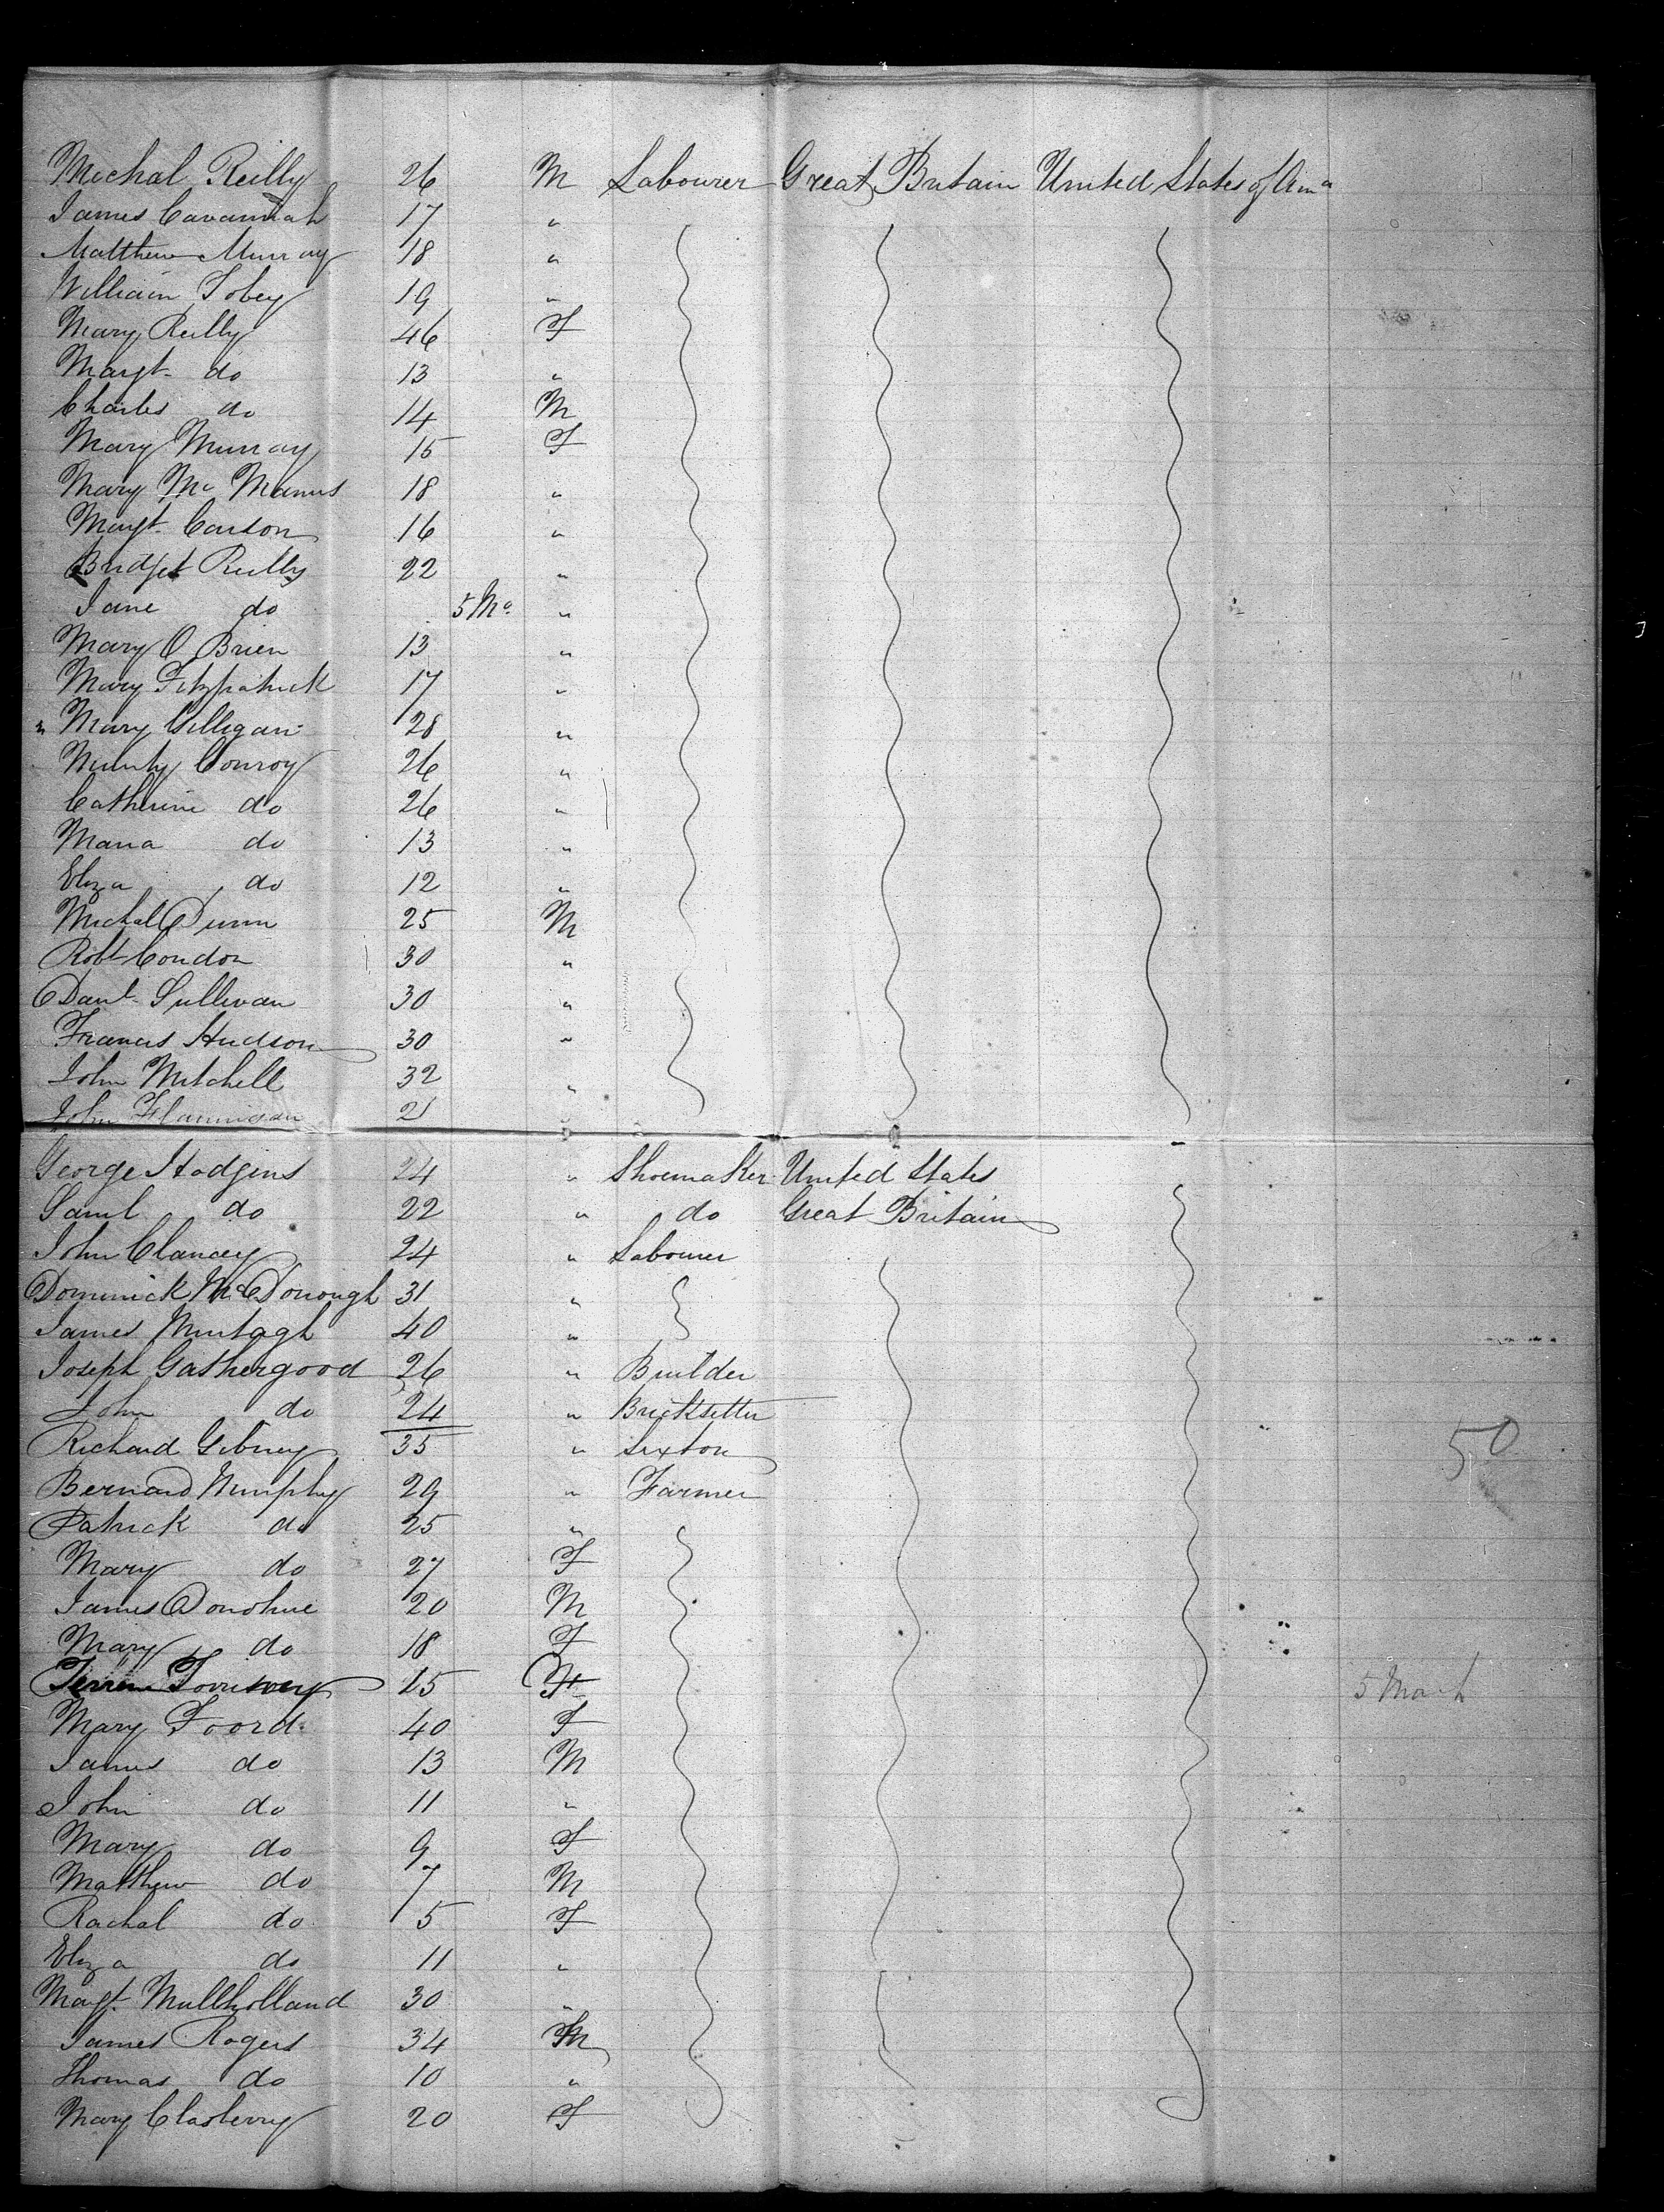 Michal Reilly 26 M Labourer Great Britain United States of Ama
James Cavannah 17 "
Matthew Murray 18 "
William Tobey 19 "
Mary Reilly 46 F
Margt. do 13 "
Charles do 14 M
Mary Murray 15 F
Mary Mc Manus 18 "
Margt. Carson 16 "
Bridget Reilly 22 "
Jane do 5 Mo. "
Mary O Brien 13 "
Mary Fitzpatrick 17 "
Mary Gilligan 28 "
Conroy 26 "
Catherine do 26 "
Maria do 13 "
Eliza do 12 "
Michal Dunn 25 M
Robt Condon 30 "
Danl. Sullivan 30 "
Francis Hudson 30 "
John Mitchell 32 "
John Flannigan 21 "
George Hodgins 24 " Shoemaker United States
Saml do 22 " do Great Britain
John Clancey 24 " Labourer
Dominick McDonough 31 "
James Murtagh 40 "
Joseph Gathergood 26 " Builder
John do 24 " Bricksetter
Richard Gibney 35 " Sexton
50
Bernard Murphy 29 " Farmer
Patrick do 25 "
Mary do 27 F
James Donohue 20 M
Mary do 18 F
15
Mary Foord 40 F
James do 13 M
John do 11 "
Mary do 9 F
Matthew do 7 M
Rachal do 5 F
Eliza do 11 "
Margt. Mullholland 30 "
James Rogers 34 M
Thomas do 10 "
Mary Clasberry 20 F